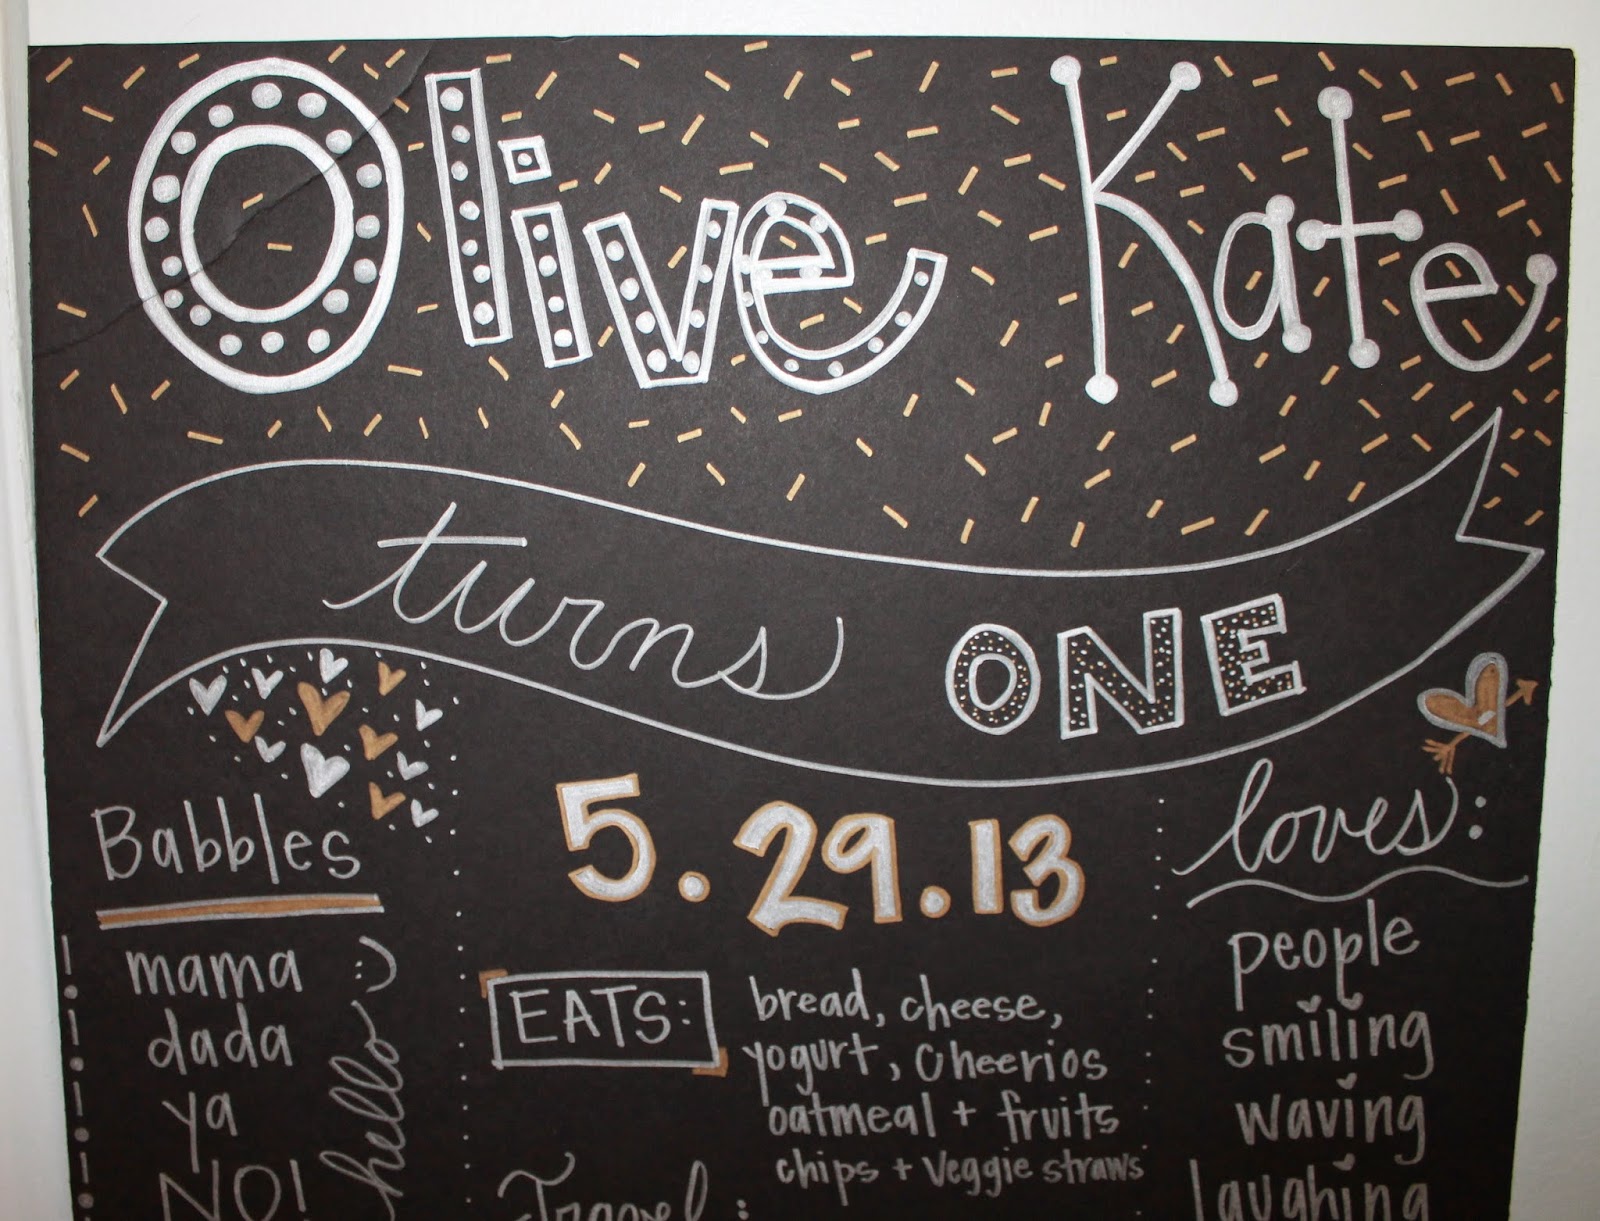 Olive Kate
turns ONE
5.29.13
Babbles
mama
dada
ya
NO!
hello :)
EATS:
bread, cheese,
yogurt, Cheerios
oatmeal + fruits
chips + Veggie straws
Travel:
loves:
people
smiling
waving
laughing